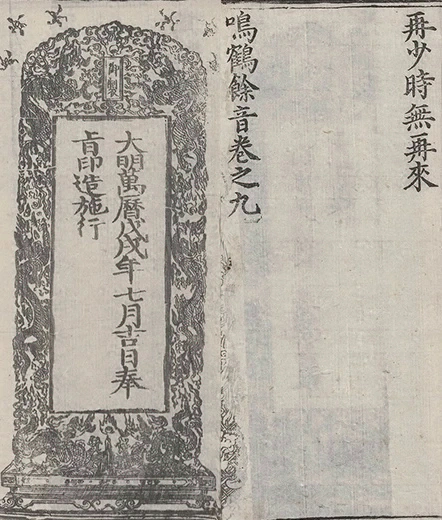 再少時無再來
鳴鶴餘音卷之九
御製
大明萬曆戊戌年七月吉日奉
旨印造施行